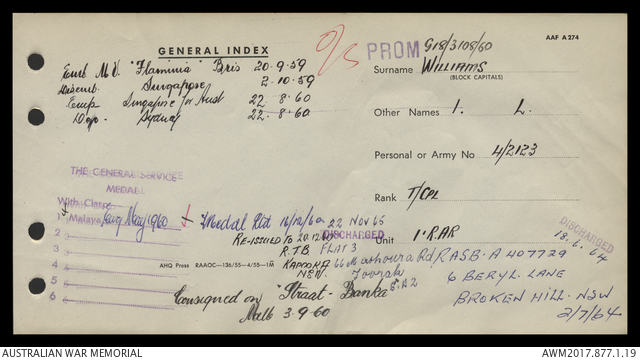 GENERAL INDEX
O/S
PROM G18/3108/60
AAF A 274
Emb M.V. "Flaminia" Bris 20-9-59
Disemb. Singapore 2-10-59
Emp Singapore for Aust 22-8-60
Dep. Sydney 22-8-60
Surname WILLIAMS
(BLOCK CAPITALS)
Other Names I. L.
Personal or Army No 4/2123
Rank T/CPL
Unit 1 RAR
THE GENERAL SERVICE
MEDAL
With Clasp
1 Malaya May/1960
2
3
4
5
6
Medal Rtd 16/12/60 22 NOV 65
RE-ISSUED TO DISCHARGED
R.T.B FLAT 3
66 Rd
NSW
DISCHARGED
18.6.64
RASB-A 407729
6 BERYL LANE
BROKEN HILL. NSW
2/7/64
AHQ Press RAAOC—136/55—4/55—1M
Consigned on "Straat-Banka"
Malb 3-9-60
AUSTRALIAN WAR MEMORIAL
AWM2017.877.1.19